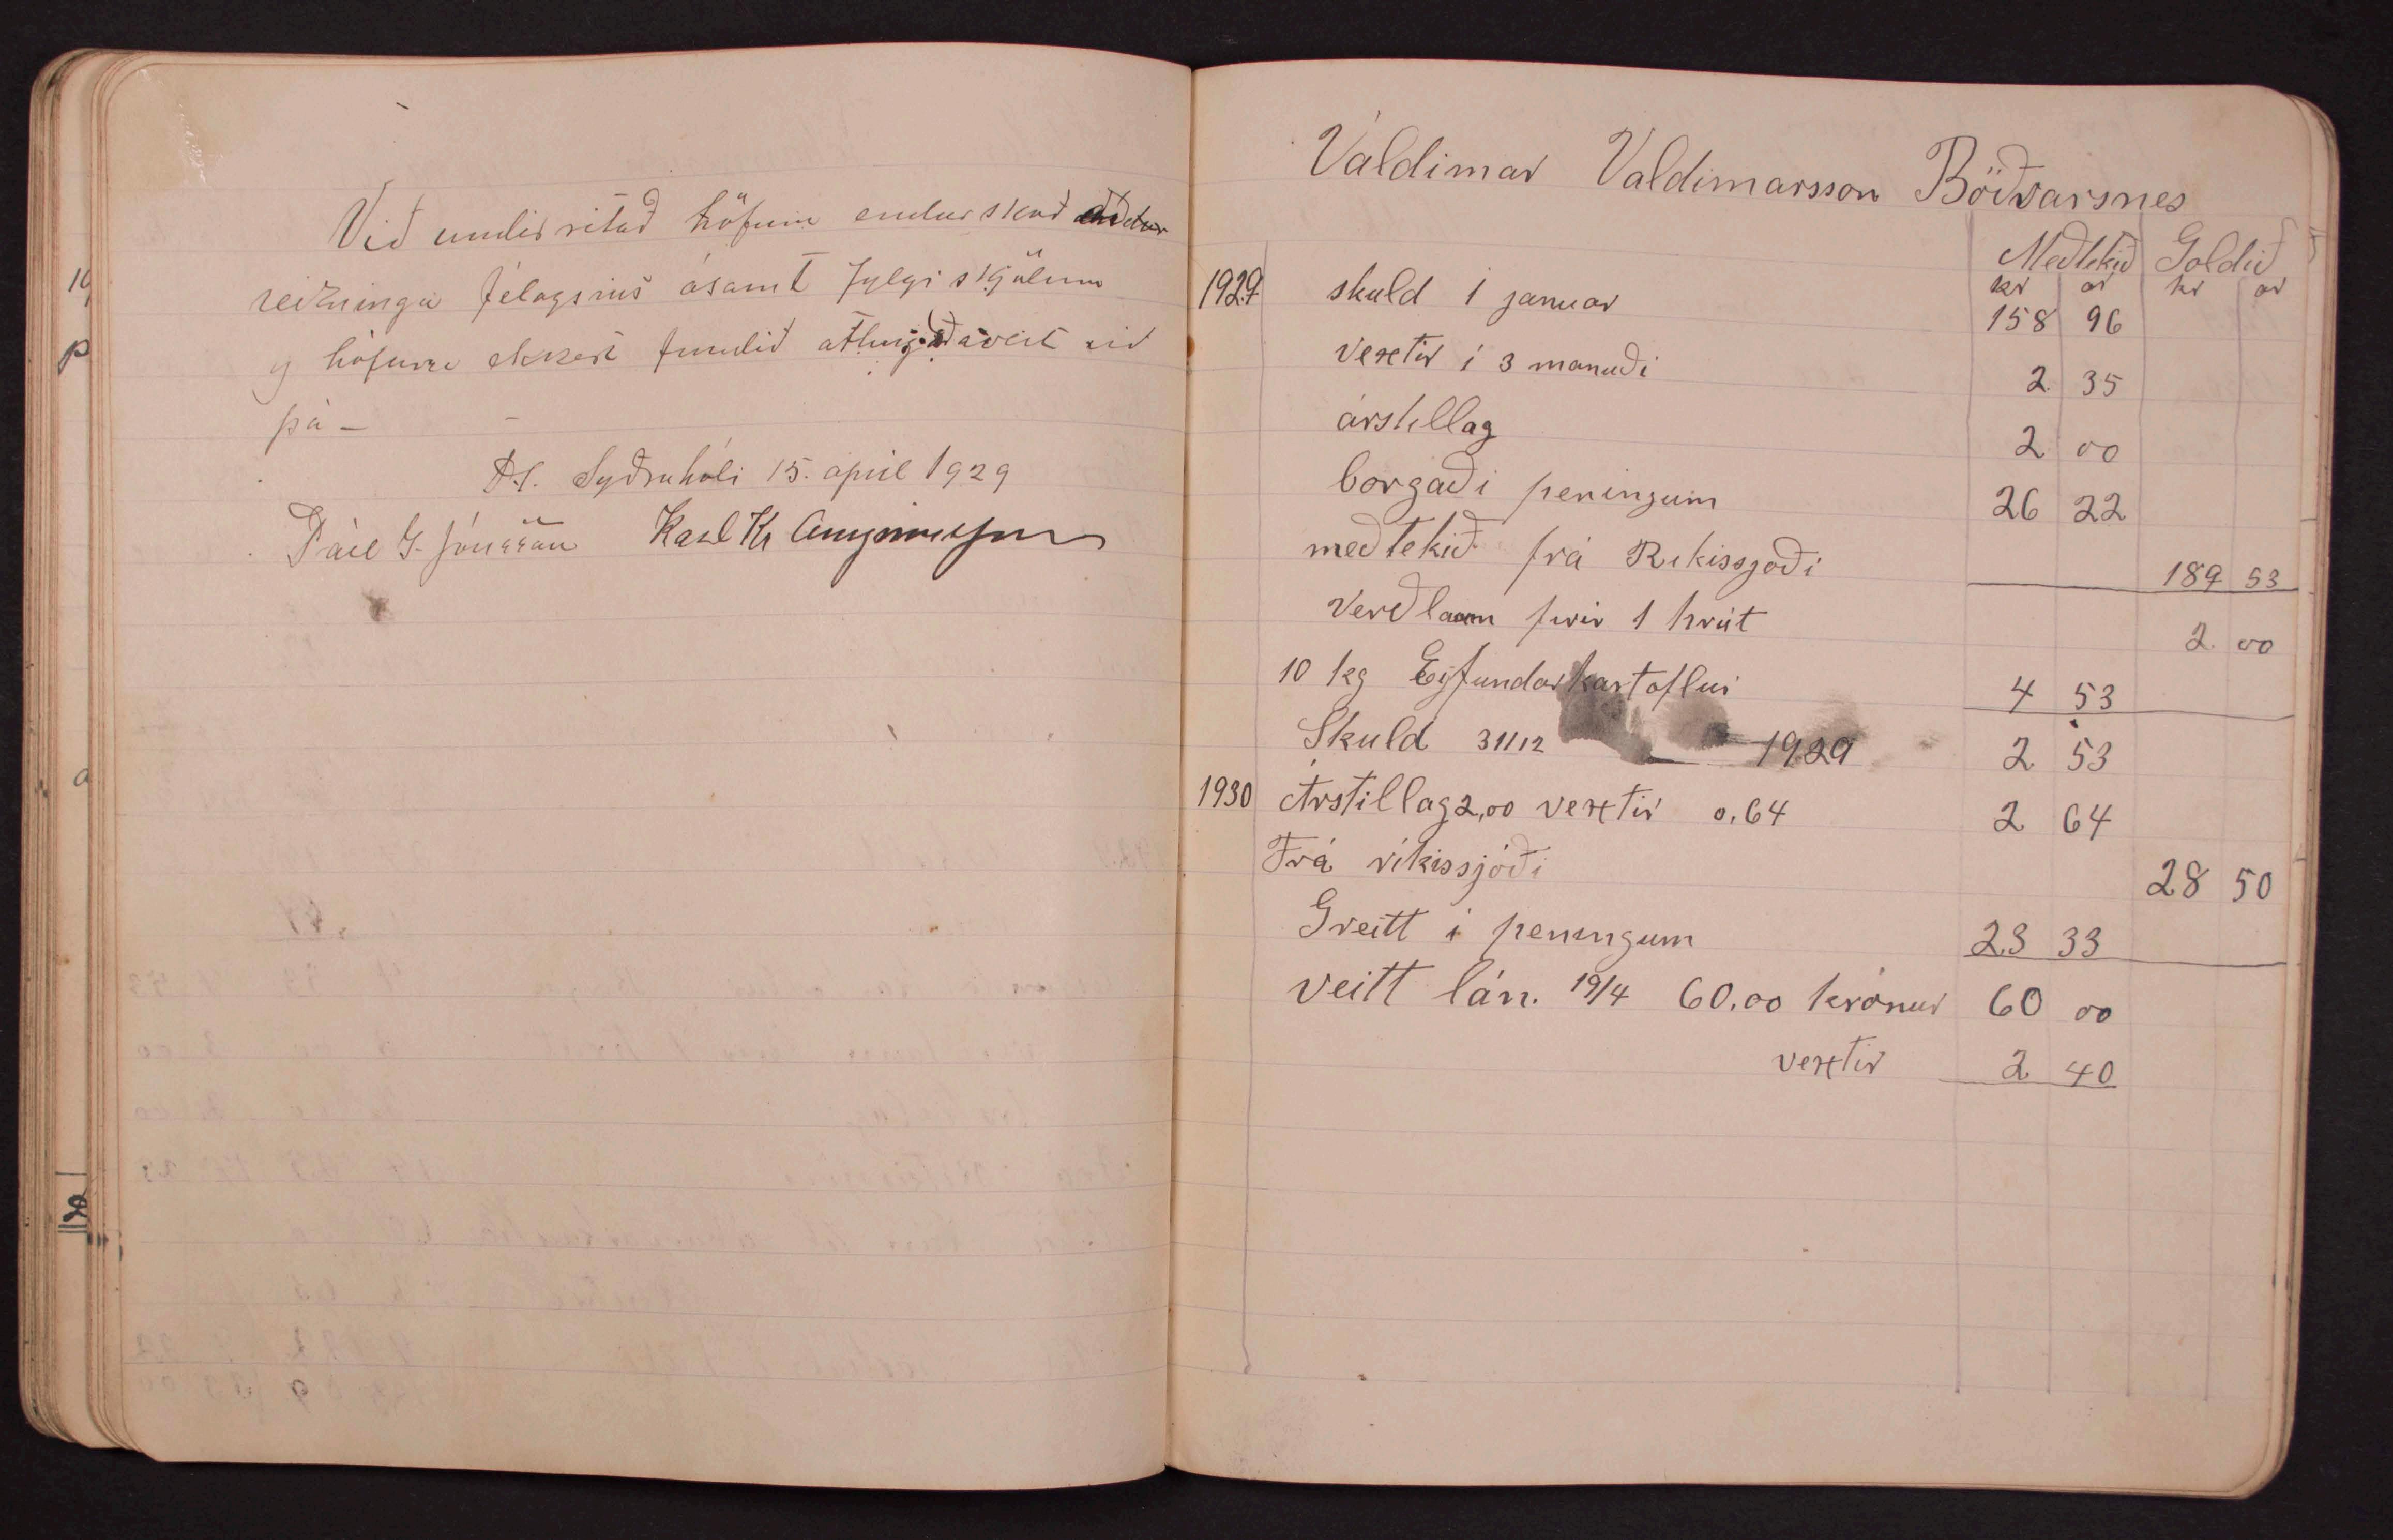 Við undirritað höfum endurskoð
reikninga félagsins ásamt fylgiskjölum
og höfum ekkert fundið athugavert við
þá —
p.t. Syðruhóli 15. apríl 1929
Páll G. Jónsson Karl Kr Arngrímsson
Valdimar Valdimarsson Böðvarsnes
Meðtekið Goldið
kr ar kr ar
1929 skuld 1 januar 158 96
vextir i 3 manuði 2 35
árstillag 2 00
borgað i peningum 26 22
meðtekið frá Rikissjoði 189 53
Verðlaun firir 1 hrút 2.00
10 kg Eyfundarkartoflur 4 53
Skuld 31/12 1929 2 53
1930 Árstillag 2,00 vextir 0.64 2 64
Frá ríkissjóði 28 50
Greitt í peningum 23 33
veitt lán. 19/4 60.00 krónur 60 00
vextir 2 40